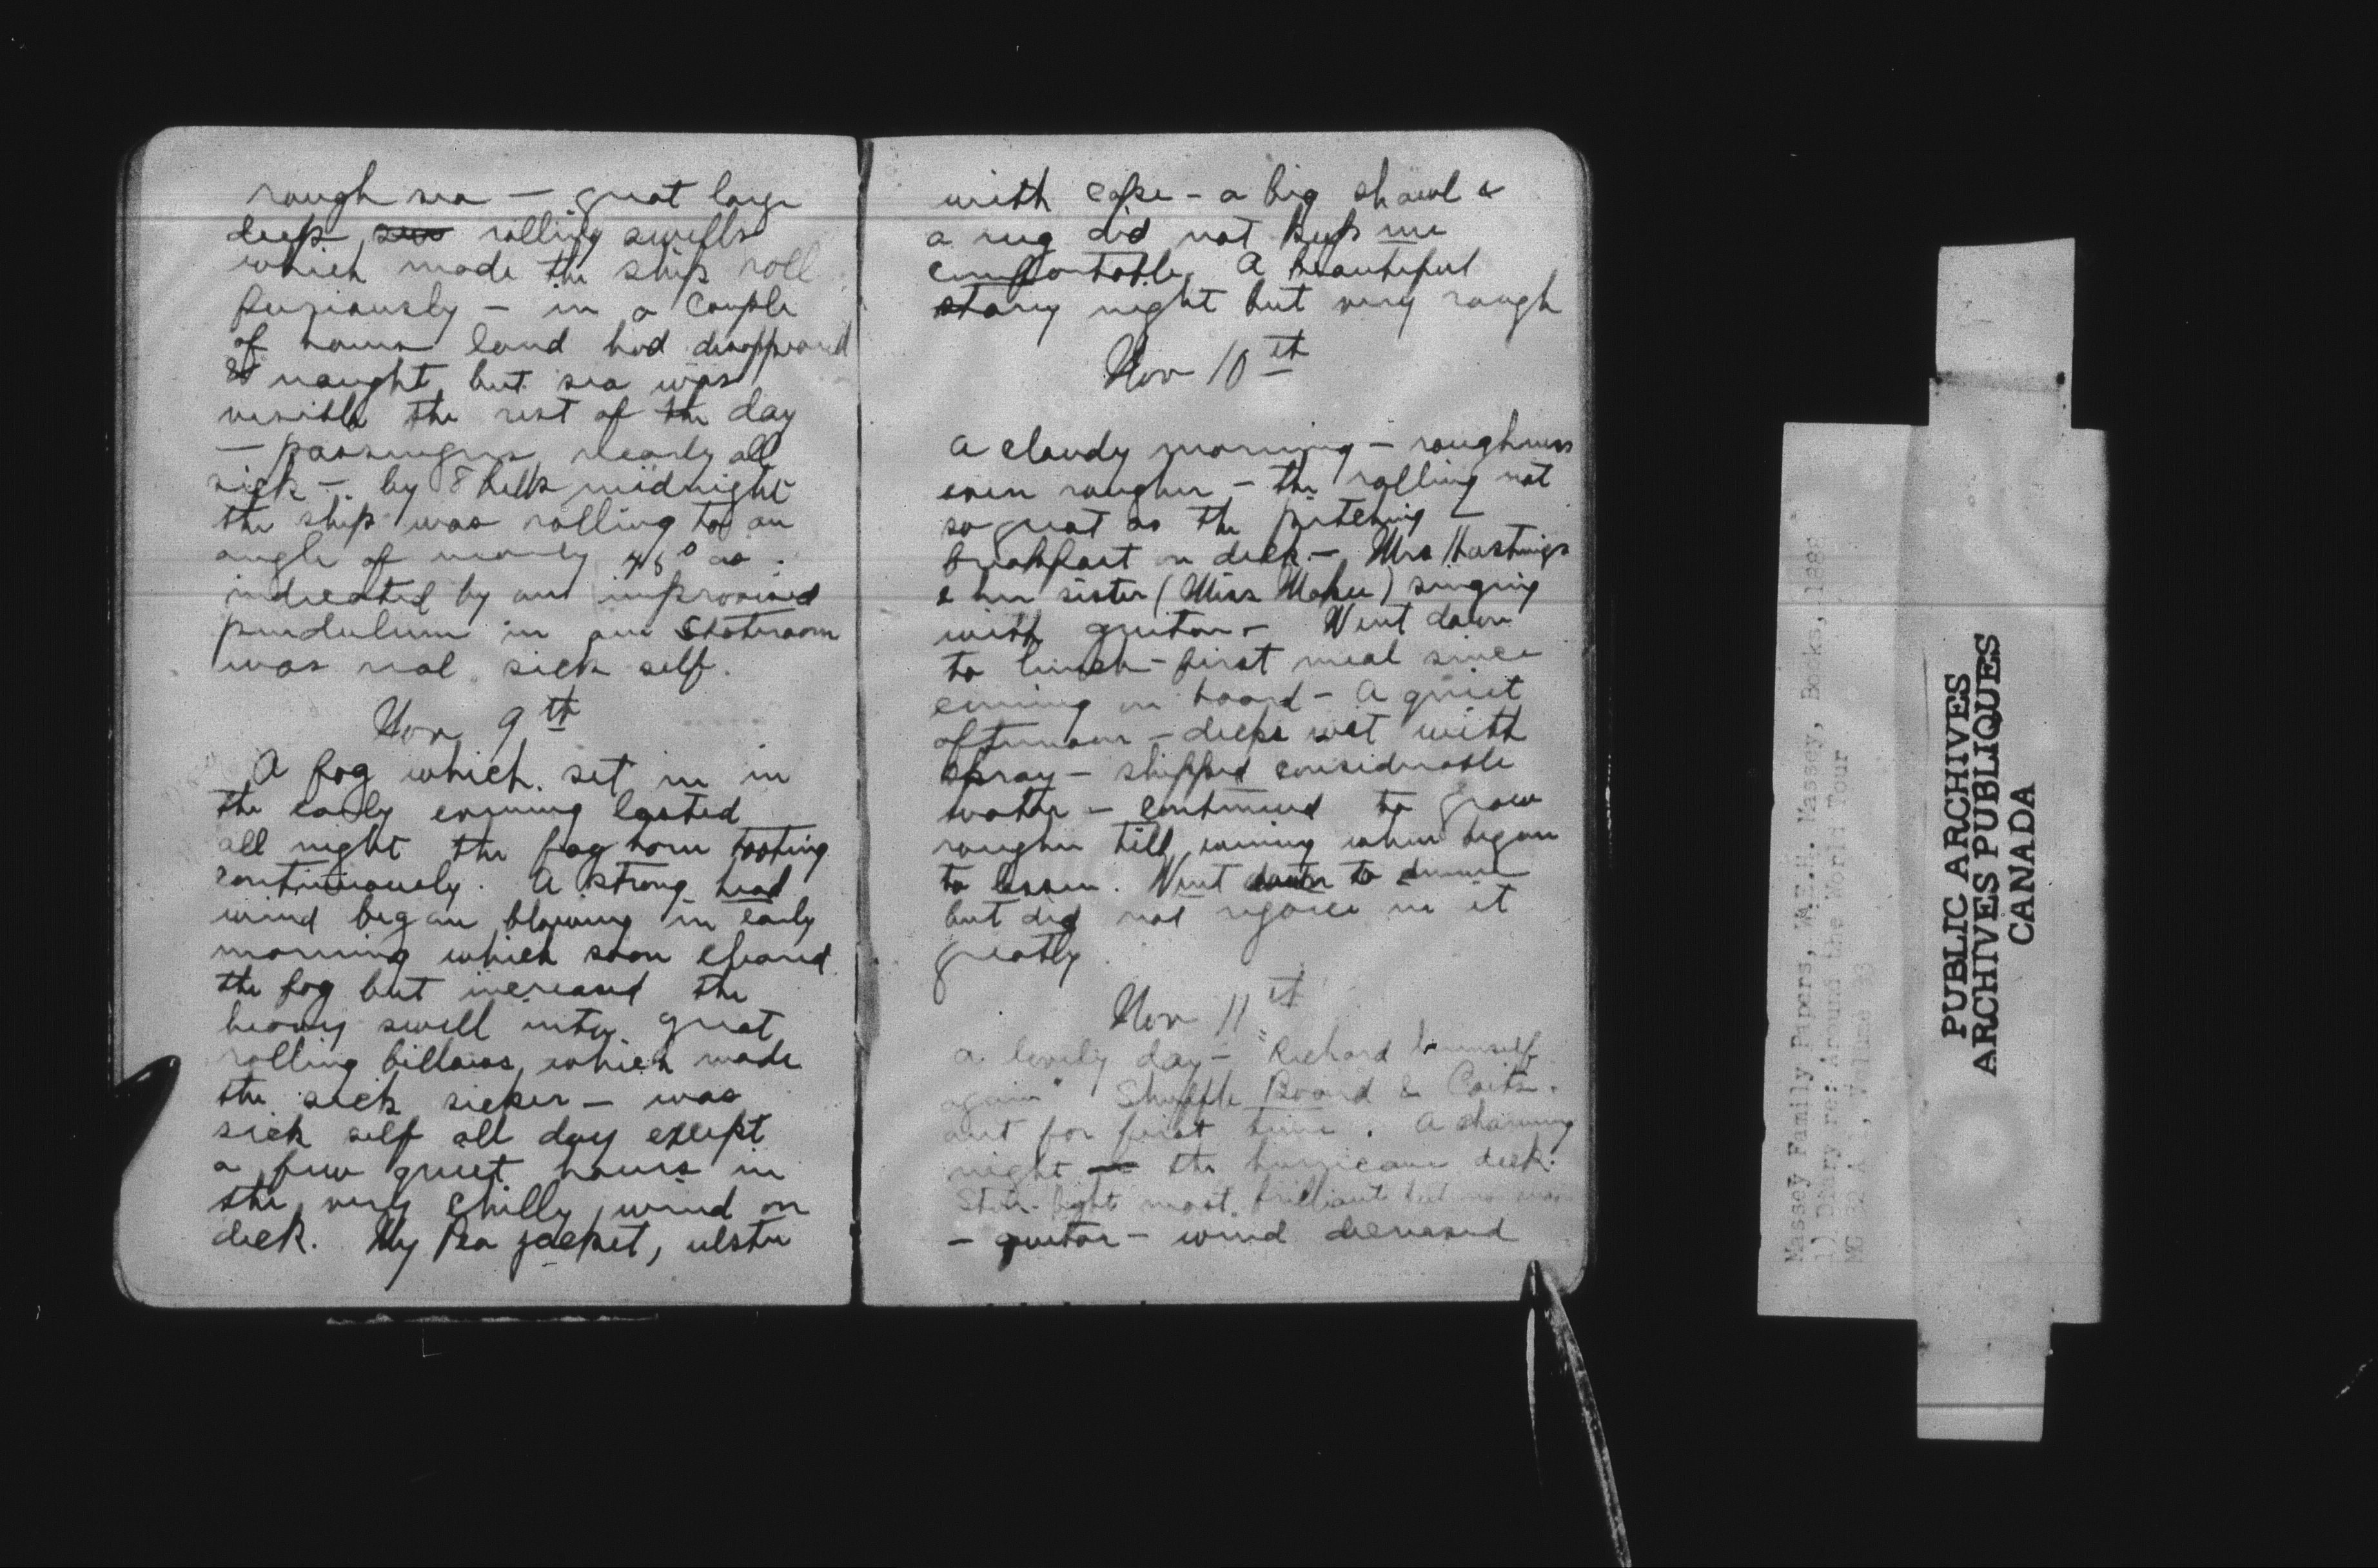 rough sea — great large
deep sea rolling swells
which made the ship roll
furiously — in a couple
of hours land had disappeared
& naught but sea was
visible the rest of the day
— passengers nearly all
sick — by 8 bells midnight
the ship was rolling to an
angle of nearly 45° as
indicated by an improvised
pendulum in our stateroom
was real sick self.
Nov 9th
A fog which set in in
the early evening lasted
all night the fog horn tooting
continuously. A strong head
wind began blowing in early
morning which soon cleared
the fog but increased the
heavy swell into great
rolling billows which made
the sick sicker — was
sick self all day except
a few quiet hours in
the very chilly wind on
deck. My Pea jacket, ulster
with cape - a big shawl &
a rug did not keep me
comfortable. A beautiful
stary night but very rough
Nov 10th
A cloudy morning — roughness
even rougher — the rolling not
so great as the pitching —
breakfast on deck — Mrs Hastings
& her sister (Miss) singing
with guitar — Went down
to lunch - first meal since
coming on board — A quiet
afternoon — decks wet with
spray — shipped considerable
water — continued to grow
rougher till evening when began
to lessen. Went down to dinner
but did not rejoice in it
greatly
Nov 11th
a lovely day — "Richard himself
again" Shuffle Board & Coits.
out for first time. A charming
night — the hurricane deck.
Star-light most brilliant but no moon
— guitar — wind decreased
Massey Family Papers, W.E.H. Massey, Books, 1888
1) Diary re: Around the World Tour
MG 32 A 1, Volume
PUBLIC ARCHIVES
ARCHIVES PUBLIQUES
CANADA